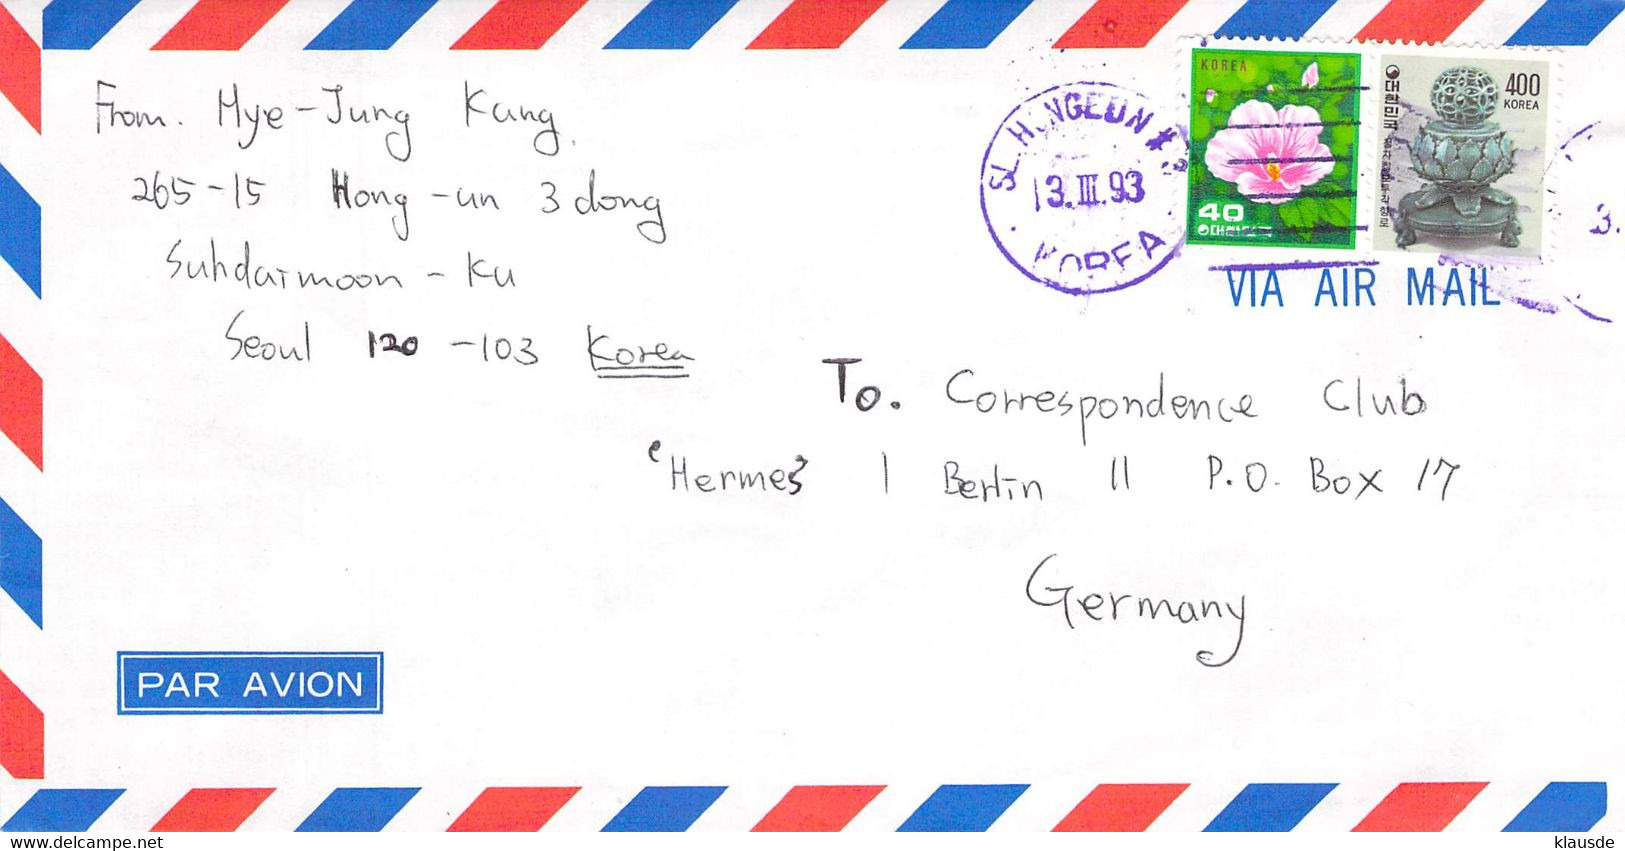 From. Hye-Jung Kang.
265-15 Hong-un 3 dong
Suhdaimoon-Ku
Seoul 120-103 Korea
KOREA
40
대한민국
400
KOREA
대한민국
13.III.93
KOREA
VIA AIR MAIL
To. Correspondence Club
'Hermes' 1 Berlin 11 P.O. Box 17
Germany
PAR AVION
delcampe.net
klausde